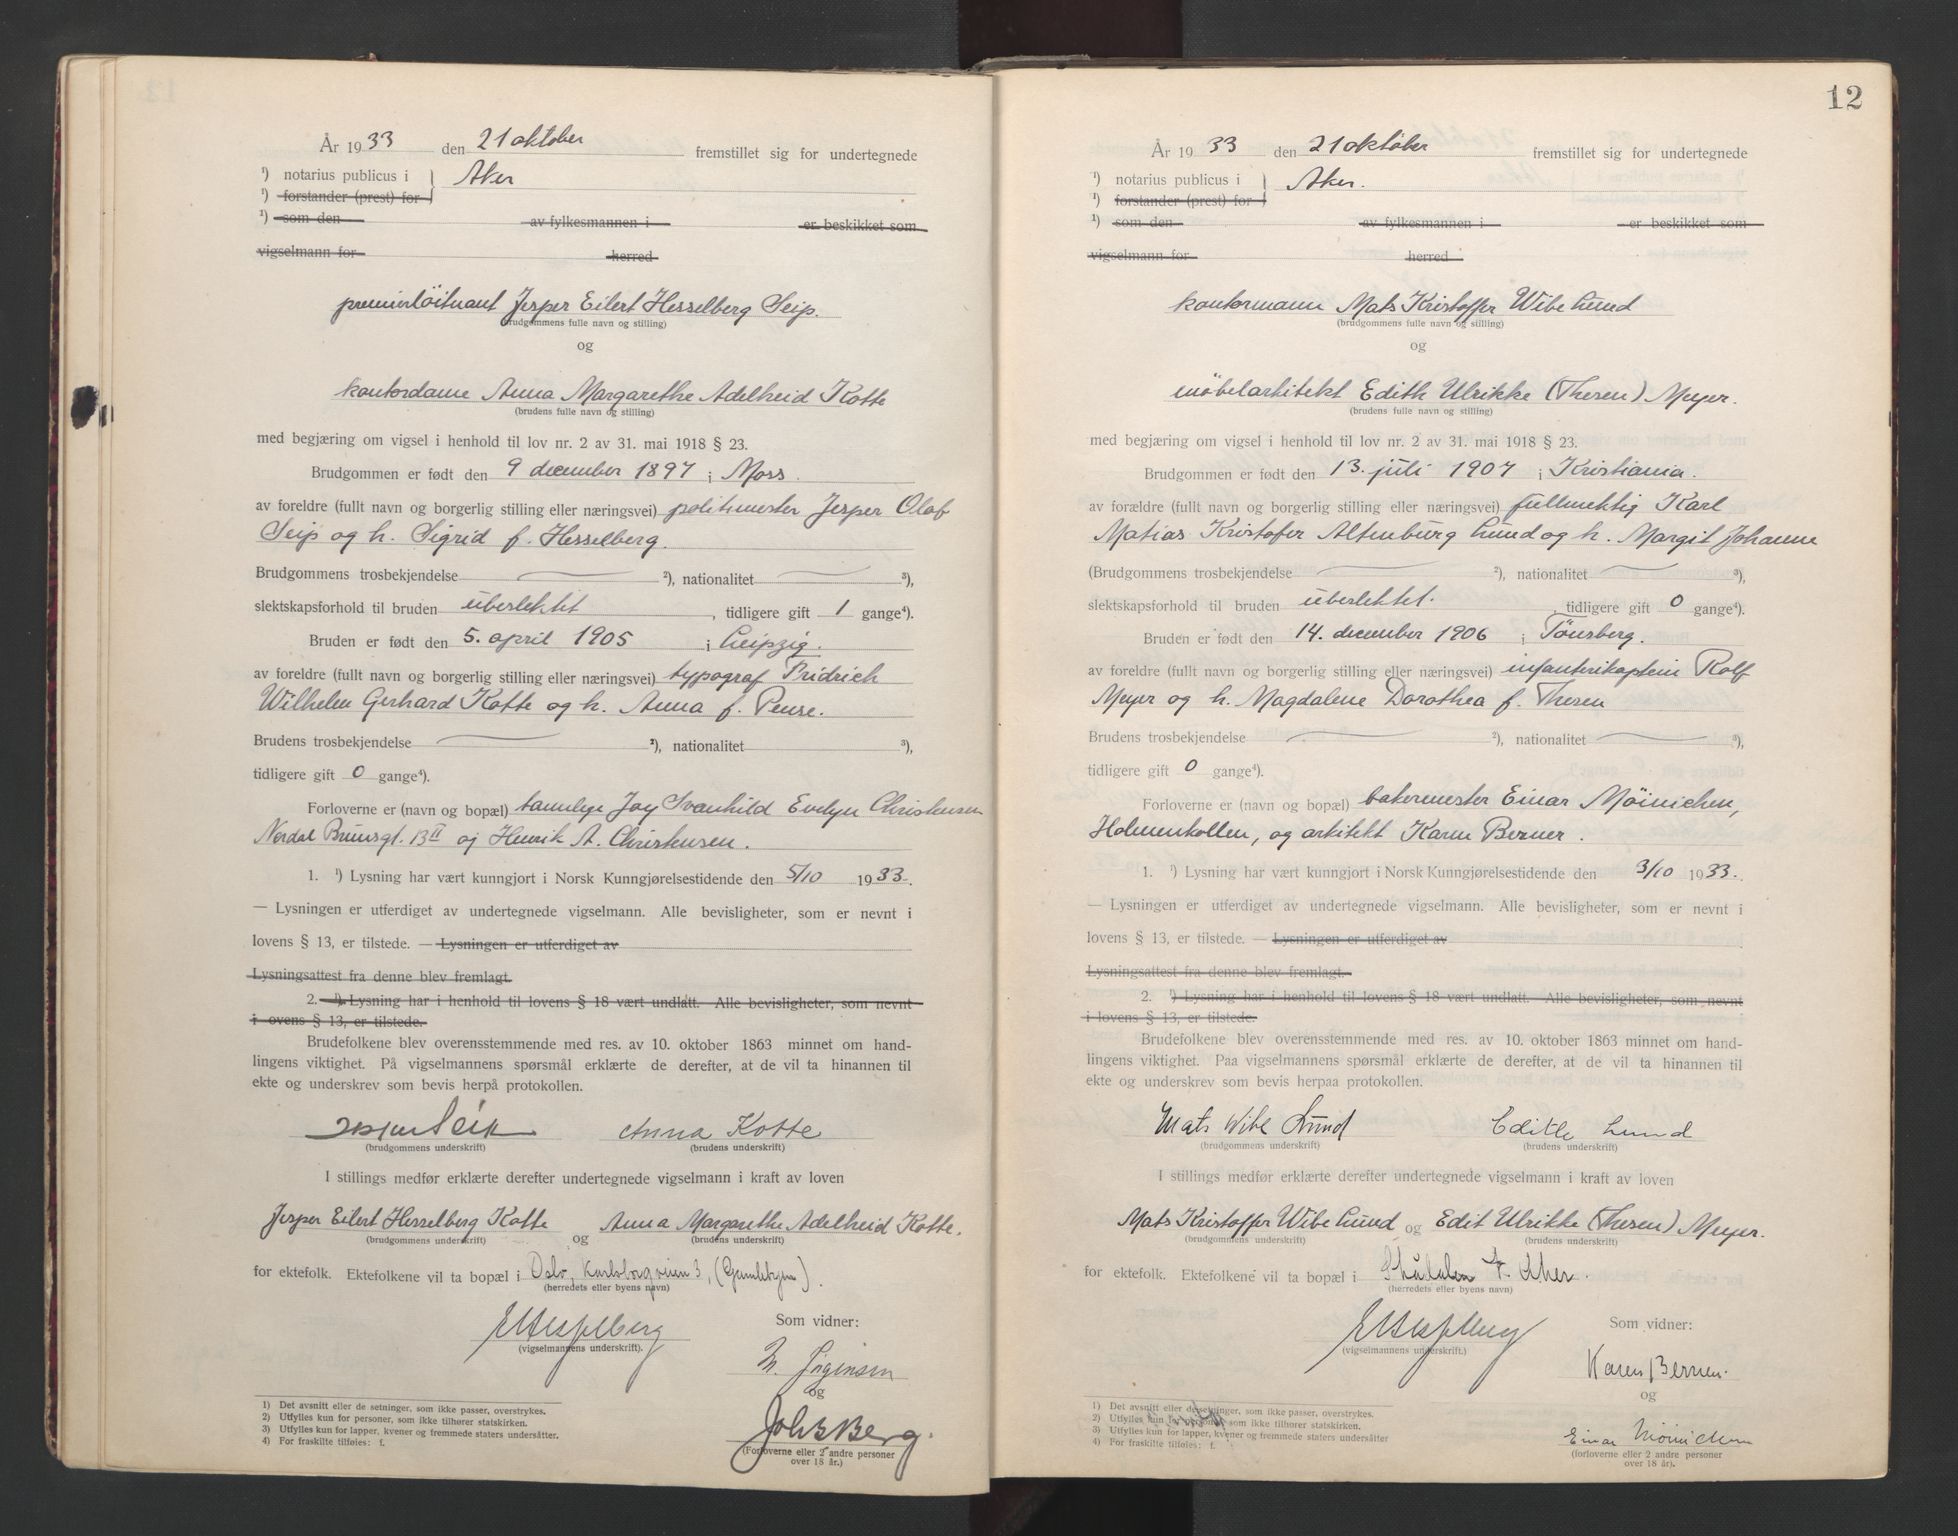 År 1933 den 21 oktober fremstillet sig for undertegnede
¹) notarius publicus i } Aker
¹) forstander (prest) for
¹) som den av fylkesmannen i er beskikket som
vigselmann for herred
premierløitnant Jesper Eilert Hesselberg Seip.
(brudgommens fulle navn og stilling)
og
kontordame Anna Margarethe Adelheid Kotte
(brudens fulle navn og stilling)
med begjæring om vigsel i henhold til lov nr. 2 av 31. mai 1918 § 23.
Brudgommen er født den 9 december 1897 i Moss.
av foreldre (fullt navn og borgerlig stilling eller næringsvei) politimester Jesper Olaf
Seip og h. Sigrid f. Hesselberg.
Brudgommens trosbekjendelse ²), nationalitet ³),
slektskapsforhold til bruden ubeslektet, tidligere gift 1 gange⁴).
Bruden er født den 5. april 1905 i Leipzig.
av foreldre (fullt navn og borgerlig stilling eller næringsvei) typograf Fridrich
Wilhelm Gerhard Kotte og h. Anna f. Pense.
Brudens trosbekjendelse ²), nationalitet ³),
tidligere gift 0 gange⁴).
Forloverne er (navn og bopæl) tannlege Joy Svanhild Evelyn Christensen
Nordal Brunsgt. 13 II og Henrik A. Christensen.
1. ¹) Lysning har vært kunngjort i Norsk Kunngjørelsestidende den 5/10 1933.
— Lysningen er utferdiget av undertegnede vigselmann. Alle bevisligheter, som er nevnt i
lovens § 13, er tilstede. — Lysningen er utferdiget av
Lysningsattest fra denne blev fremlagt.
2. ¹) Lysning har i henhold til lovens § 18 vært undlatt. Alle bevisligheter, som nevnt
i ovens § 13, er tilstede.
Brudefolkene blev overensstemmende med res. av 10. oktober 1863 minnet om hand-
lingens viktighet. På vigselmannens spørsmål erklærte de derefter, at de vil ta hinannen til
ekte og underskrev som bevis herpå protokollen.
Jesper Seip Anna Kotte
(brudgommens underskrift) (brudens underskrift)
I stillings medfør erklærte derefter undertegnede vigselmann i kraft av loven
Jesper Eilert Hesselberg Kotte og Anna Margarethe Adelheid Kotte.
(brudgommens underskrift) (brudens underskrift)
for ektefolk. Ektefolkene vil ta bopæl i Oslo, Karlsborgveien 3, (Gamlebyen).
(herredets eller byens navn)
Hesselberg Som vidner:
(vigselmannens underskrift).
Jørgensen
og
Joh B Berg.
(Forloverne eller 2 andre personer
over 18 år.)
1) Det avsnitt eller de setninger, som ikke passer, overstrykes.
2) Utfylles kun for personer, som ikke tilhører statskirken.
3) Utfylles kun for lapper, kvener og fremmede staters undersåtter.
4) For fraskilte tilføies: f.
12
År 1933 den 21 oktober fremstillet sig for undertegnede
¹) notarius publicus i } Aker.
¹) forstander (prest) for
¹) som den av fylkesmannen i er beskikket som
vigselmann for herred
kontormann Mats Kristoffer Wibe Lund
(brudgommens fulle navn og stilling)
og
møbelarkitekt Edith Ulrikke (Thesen) Meyer.
(brudens fulle navn og stilling)
med begjæring om vigsel i henhold til lov nr. 2 av 31. mai 1918 § 23.
Brudgommen er født den 13. juli 1907 i Kristiania.
av forældre (fullt navn og borgerlig stilling eller næringsvei) fullmektig Karl
Matias Kristofer Altenburg Lund og h. Margit Johanne
(Brudgommens trosbekjendelse ²), nationalitet ³),
slektskapsforhold til bruden ubeslektet. tidligere gift 0 gange⁴).
Bruden er født den 14. december 1906 i Tönsberg.
av foreldre (fullt navn og borgerlig stilling eller næringsvei) infanterikaptein Rolf
Meyer og h. Magdalene Dorothea f. Thesen
Brudens trosbekjendelse ²), nationalitet ³),
tidligere gift 0 gange⁴).
Forloverne er (navn og bopæl) bakermester Einar Möinichen,
Holmenkollen, og arkitekt Karen Berner.
1. ¹) Lysning har vært kunngjort i Norsk Kunngjørelsestidende den 3/10 1933.
— Lysningen er utferdiget av undertegnede vigselmann. Alle bevisligheter, som er nevnt i
lovens § 13, er tilstede. — Lysningen er utferdiget av
Lysningsattest fra denne blev fremlagt.
2. ¹) Lysning har i henhold til lovens § 18 vært undlatt. Alle bevisligheter, som nevnt
i lovens § 13, er tilstede.
Brudefolkene blev overensstemmende med res. av 10. oktober 1863 minnet om hand-
lingens viktighet. Paa vigselmannens spørsmål erklærte de derefter, at de vil ta hinannen til
ekte og underskrev som bevis herpaa protokollen.
Mats Wibe Lund Edith Lund
(brudgommens underskrift) (brudens underskrift)
I stillings medfør erklærte derefter undertegnede vigselmann i kraft av loven
Mats Kristoffer Wibe Lund og Edit Ulrikke (Thesen) Meyer.
(brudgommens underskrift) (brudens underskrift)
for ektefolk. Ektefolkene vil ta bopæl i Aker.
(herredets eller byens navn)
Hesselberg Som vidner:
(vigselmannens underskrift.)
Karen Berner.
og
Einar Möinichen
(forloverne eller 2 andre personer
over 18 år).
1) Det avsnitt eller de setninger, som ikke passer, overstrykes.
2) Utfylles kun for personer som ikke tilhører statskirken.
3) Utfylles kun for lapper, kvener og fremmede staters undersåtter
4) For fraskilte tilføies: f.